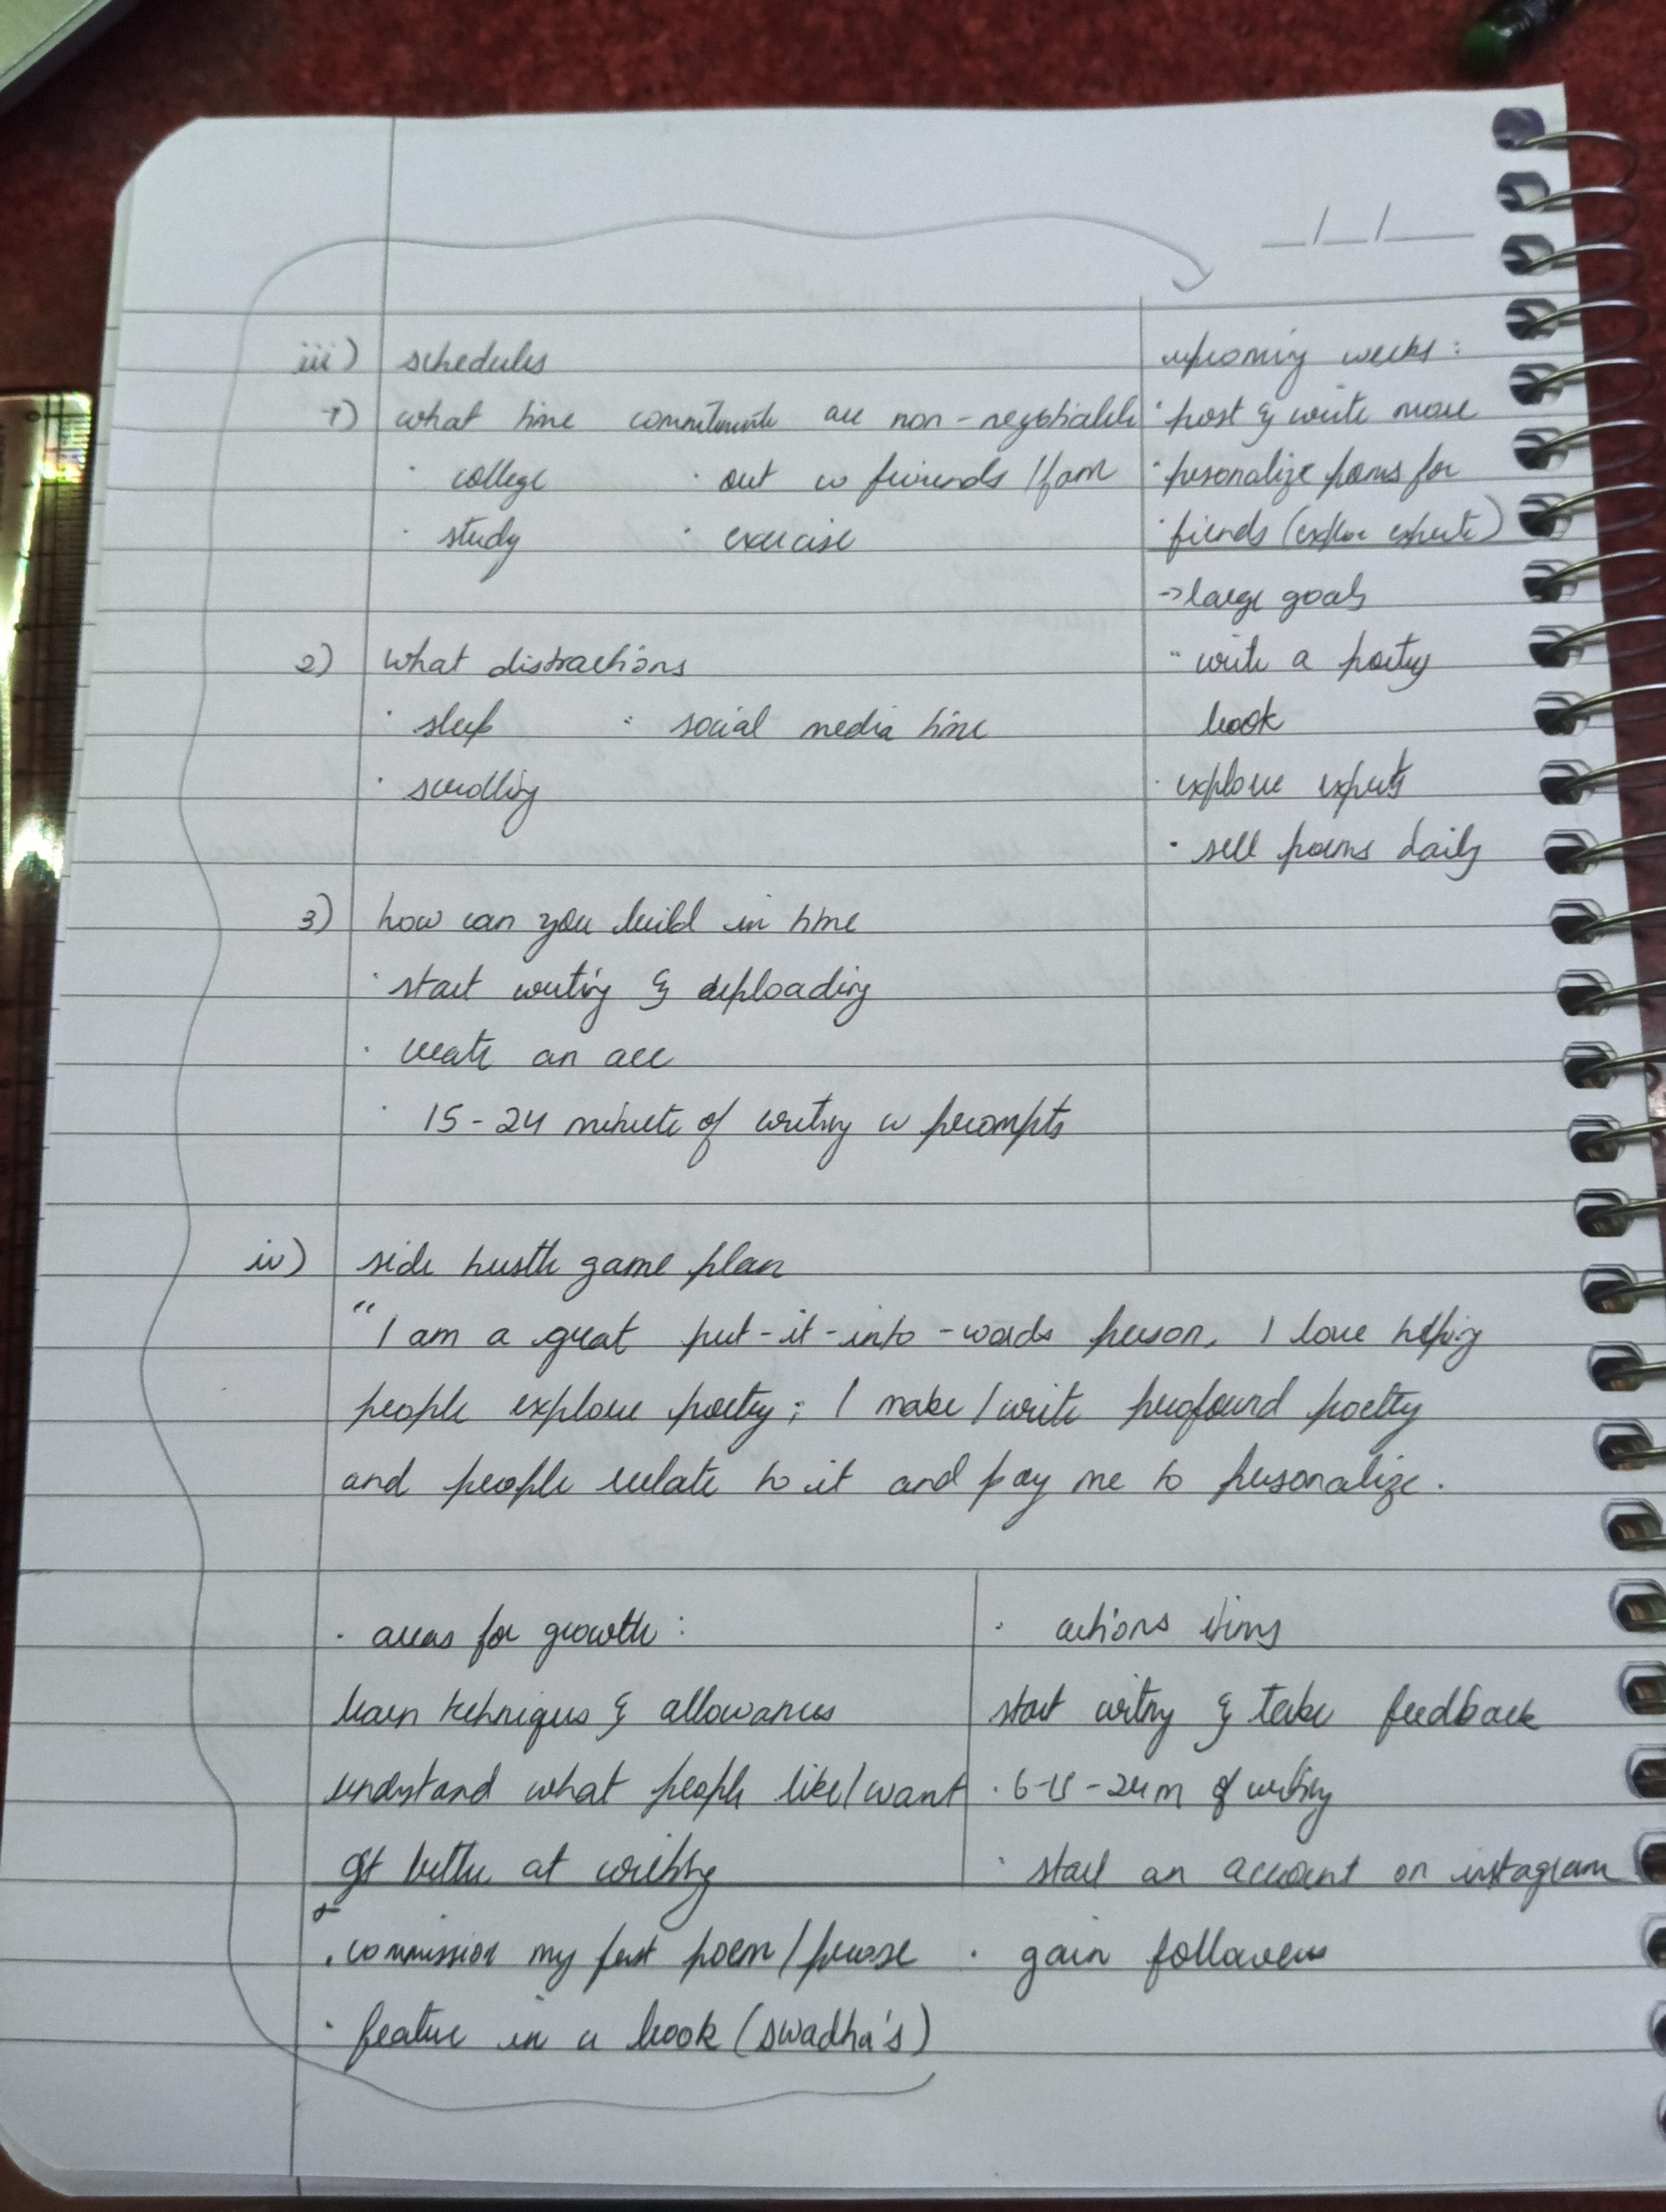 __/__/____
iii) schedules
1) what time commitments are non-negotiable
· college · out w friends / fam
· study · exercise
2) what distractions
· sleep · social media time
· scrolling
3) how can you build in time
· start writing & uploading
· create an acc
· 15-24 minute of writing w prompts
upcoming weeks:
· post & write more
· personalize poems for
· friends (explore experts)
→ large goals
·· write a poetry
book
· explore experts
· sell poems daily
iv) side hustle game plan
"I am a great put-it-into-words person, I love helping
people explore poetry; I make/write profound poetry
and people relate to it and pay me to personalize.
· areas for growth:
learn techniques & allowances
understand what people like/want
get better at writing
· commission my first poem/prose
· feature in a book (swadha's)
· actions items
start writing & take feedback
· 6-15-24m of writing
· start an account on instagram
· gain followers